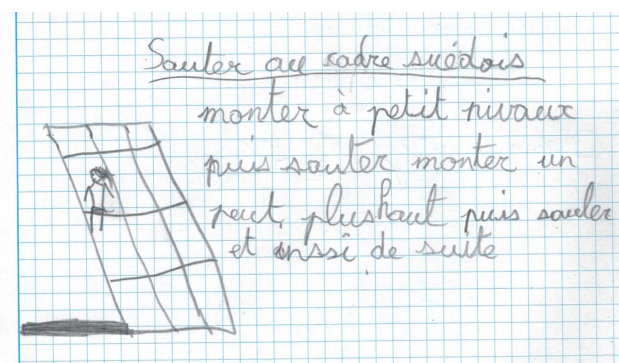 Sauter au cadre suédois
monter à petit nivaux
puis sauter monter un
peut plus haut puis sauter
et inssi de suite